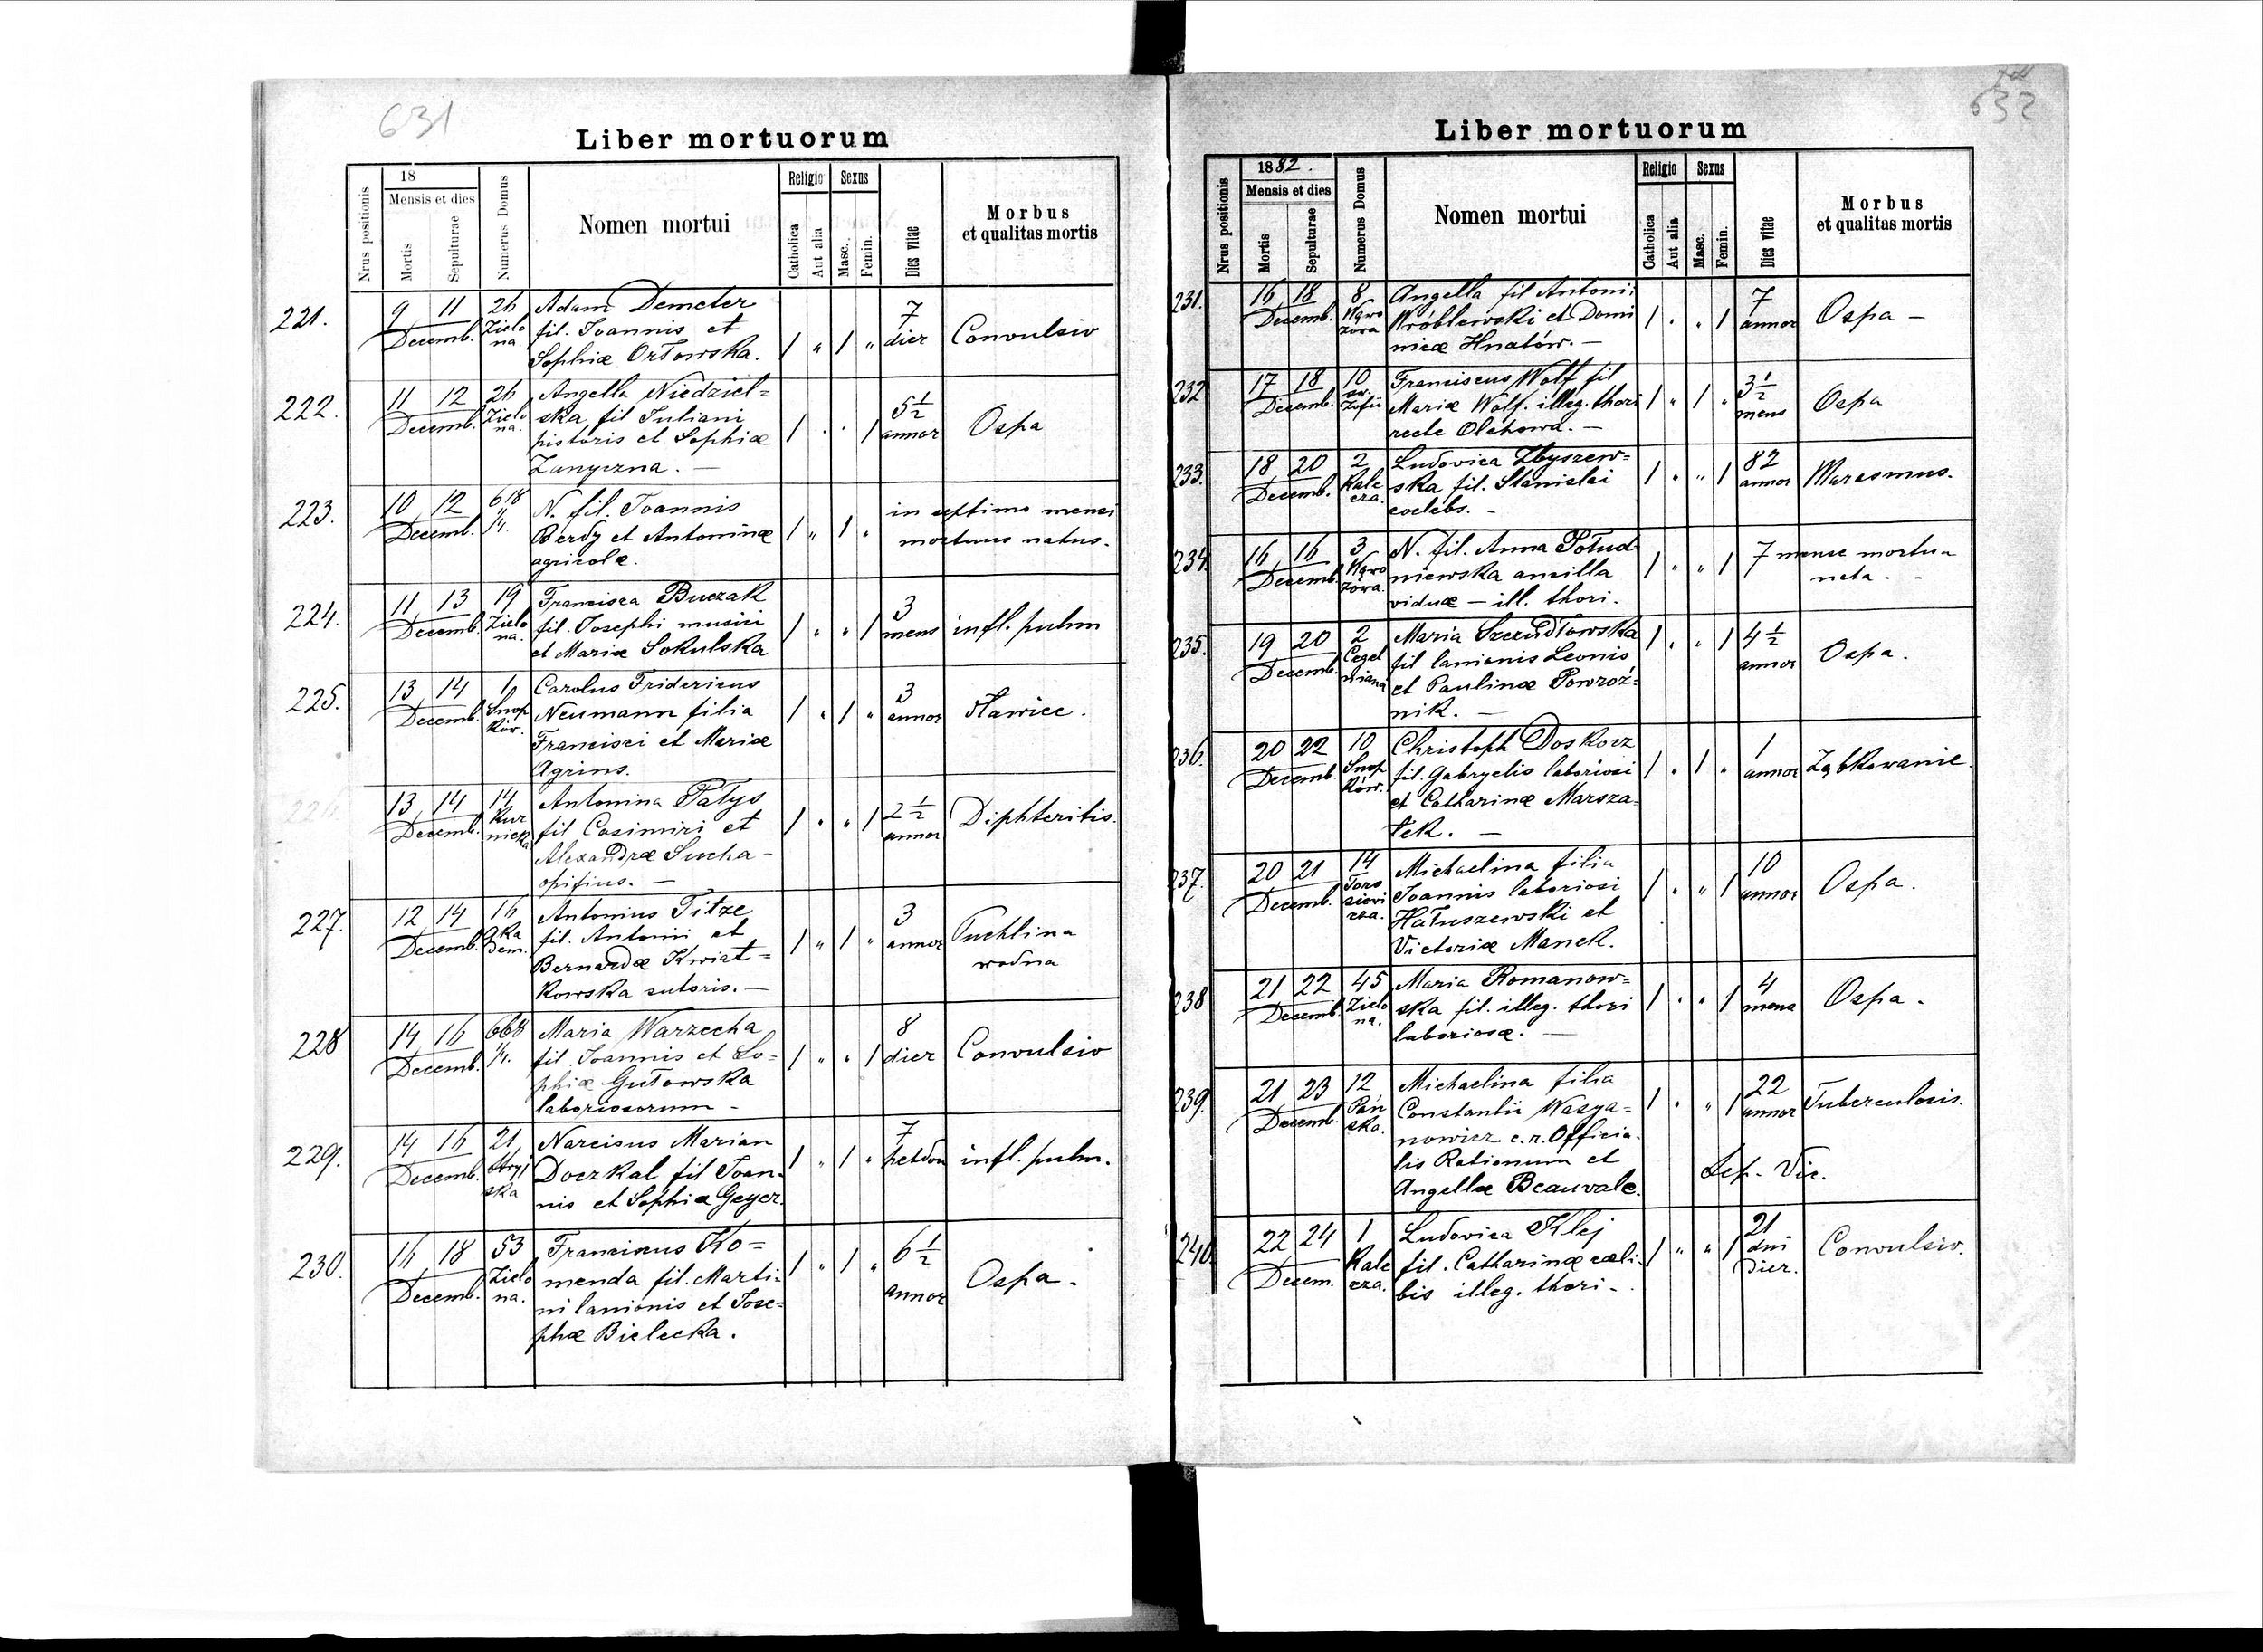 631
Liber mortuorum
Nrus positionis
18
Mensis et dies
Mortis
Sepulturae
Numerus Domus
Nomen mortui
Religio
Catholica
Aut alia
Sexus
Masc.
Femin.
Dies vitae
Morbus
et qualitas mortis
221.
9 11
Decemb.
26
Zielo
na
Adam Demeter
fil. Joannis et
Sophiæ Orłowska.
/ „ / „
7
dier
Convulsio
222.
11 12
Decemb.
26
Zielo
na.
Angella Niedziel=
ska fil Juliani
pistoris et Sophiæ
Zanyczna. —
/ . . /
5 1/2
annor
Ospa
223.
10 12
Decemb.
618
1/4.
N. fil. Joannis
Berdy et Antoninæ
agricolæ.
/ „ / „
in septimo mensi
mortuus natus.
224.
11 13
Decemb.
19
Zielo
na.
Francisca Buczak
fil. Josephi musici
et Mariæ Sokulska
/ „ „ /
3
mens
infl. pulm
225.
13 14
Decemb.
1
Snop
ków.
Carolus Fridericus
Neumann filia
Francisci et Mariæ
Agrins.
/ „ / „
3
annor
Hawice.
226.
13 14
Decemb.
14
Kur
nicka
Antonina Patys
fil Casimiri et
Alexandræ Sucha –
opifius. —
/ „ „ /
2 1/2
annor
Diphteritis.
227.
12 14
Decemb.
16
Aka
dem.
Antonius Titze
fil. Antonii et
Bernardæ Kwiat=
kowska sutoris. —
/ „ / „
3
annor
Puchlina
wodna
228
14 16
Decemb.
668
1/4.
Maria Warzecha
fil. Joannis et So=
phiæ Gutowska
laboriosorum –
/ „ „ /
8
dier
Convulsio
229.
14 16
Decemb.
21
Stryj
ska
Narcisus Marian
Doczkal fil Joan=
nis et Sophiæ Geyer.
/ „ / „
7
hebdom
infl. pulm.
230.
16 18
Decemb.
53
Zielo
na.
Francinus Ko=
menda fil. Marti=
ni lanionis et Jose=
phæ Bielecka.
/ „ / „
6 1/2
annor
Ospa.
632
Liber mortuorum
Nrus positionis
1882.
Mensis et dies
Mortis
Sepulturae
Numerus Domus
Nomen mortui
Religio
Catholica
Aut alia
Sexus
Masc.
Femin.
Dies vitae
Morbus
et qualitas mortis
231.
16 18
Decemb.
8
Wąwo
zowa
Angella fil Antonii
Wróblewski et Domi
nicæ Hnatów. —
/ . „ /
7
annor
Ospa –
232
17 18
Decemb.
10
sw.
Zofii
Franciscus Wolf fil
Mariæ Wolf. illeg. thori
recte Olchowa. —
/ „ / „
3 1/2
mens
Ospa
233.
18 20
Decemb.
2
Kale
cza.
Ludovica Zbyszew=
ska fil. Stanislai
coelebs. –
/ „ „ /
82
annor
Marasmus.
234.
16 16
Decemb.
3
Wąwo
zowa.
N. fil. Anna Połud
niewska ancilla
viduæ — ill. thori.
/ „ „ /
7 mense mortua
nata. –
235.
19 20
Decemb.
2
Cegel
niana
Maria Szczudłowska
fil lanionis Leonis
et Paulinæ Powroź=
nik. —
/ . „ /
4 1/2
annor
Ospa.
236.
20 22
Decemb.
10
Snop
ków.
Christoph Doskocz
fil. Gabryelis laboriosi
et Catharinæ Marsza=
łek. —
/ . / „
1
annor
Ząbkowanie.
237.
20 21
Decemb.
14
Toro
siewi
cza.
Michaelina filia
Joannis laboriosi
Hałuszewski et
Victoriæ Manek.
/ . „ /
10
annor
Ospa.
238
21 22
Decemb.
45
Zielo
na.
Maria Romanow=
ska fil. illeg. thori
laboriosæ. —
/ . „ /
4
mens
Ospa.
239.
21 23
Decemb.
12
Pań
ska.
Michaelina filia
Constantii Wasya=
nowicz c. r. Officia=
lis Rationum et
Angellæ Beauvale.
/ . „ /
22
annor
Tuberculosis.
Sep. Vic.
240.
22 24
Decem.
1
Kale
cza.
Ludovica Klej
fil. Catharinæ cæli=
bis illeg. thori –
/ „ „ /
21
dni
dier.
Convulsio.